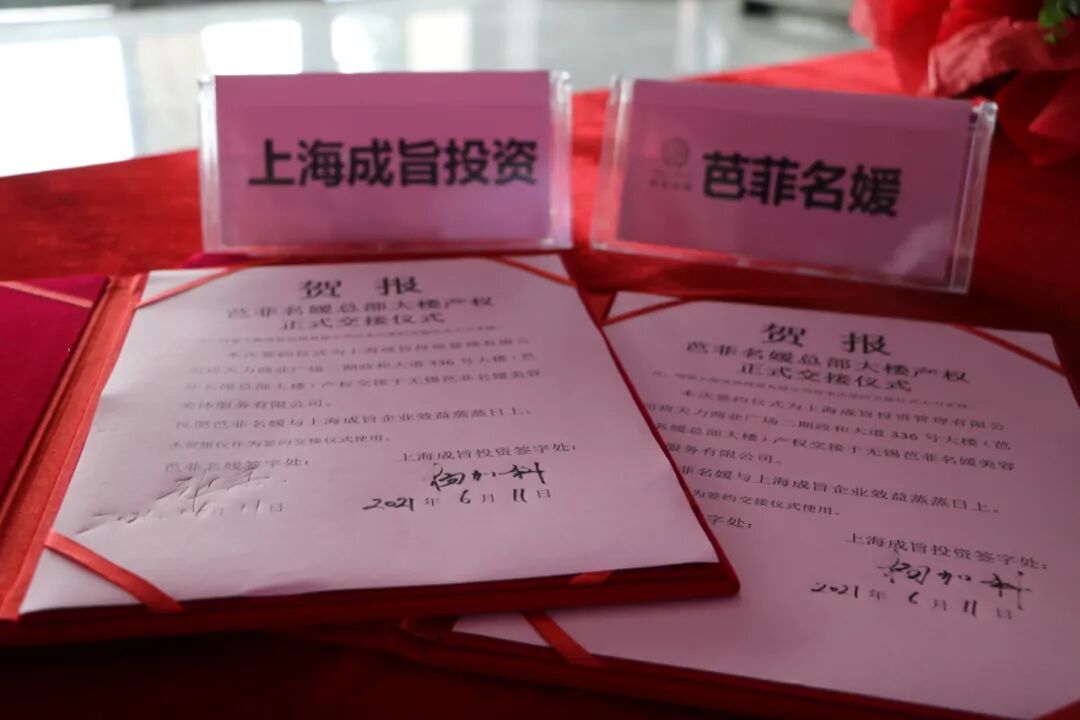 上海成旨投资
芭菲名媛
贺报
芭菲名媛总部大楼产权
正式交接仪式
本次签约仪式为上海成旨投资管理有限公
司将天力商业广场二期政和大道336号大楼(芭
菲名媛总部大楼)产权交接于无锡芭菲名媛美容
美体服务有限公司。
祝愿芭菲名媛与上海成旨企业效益蒸蒸日上。
本贺报仅作为签约交接仪式使用。
芭菲名媛签字处:
上海成旨投资签字处:
2021年6月11日
2021年6月11日
贺报
芭菲名媛总部大楼产权
正式交接仪式
本次签约仪式为上海成旨投资管理有限公
司将天力商业广场二期政和大道336号大楼(芭
总部大楼)产权交接于无锡芭菲名媛美容
服务有限公司。
菲名媛与上海成旨企业效益蒸蒸日上。
为签约交接仪式使用。
字处:
上海成旨投资签字处:
2021年6月11日